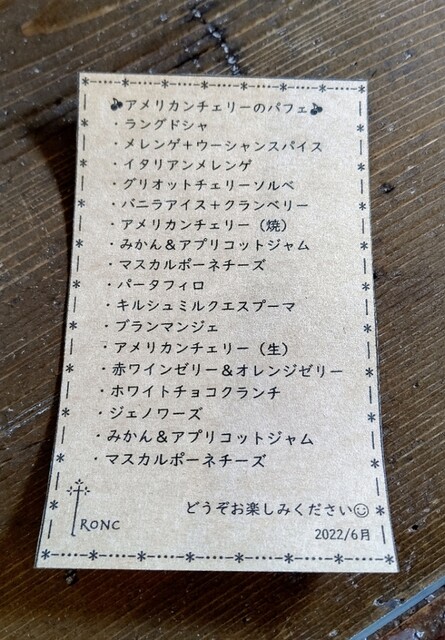 アメリカンチェリーのパフェ
・ラングドシャ
・メレンゲ+ウーシャンスパイス
・イタリアンメレンゲ
・グリオットチェリーソルベ
・バニラアイス+クランベリー
・アメリカンチェリー（焼）
・みかん&アプリコットジャム
・マスカルポーネチーズ
・パータフィロ
・キルシュミルクエスプーマ
・ブランマンジェ
・アメリカンチェリー（生）
・赤ワインゼリー&オレンジゼリー
・ホワイトチョコクランチ
・ジェノワーズ
・みかん&アプリコットジャム
・マスカルポーネチーズ
どうぞお楽しみください☺
RONC
2022/6月